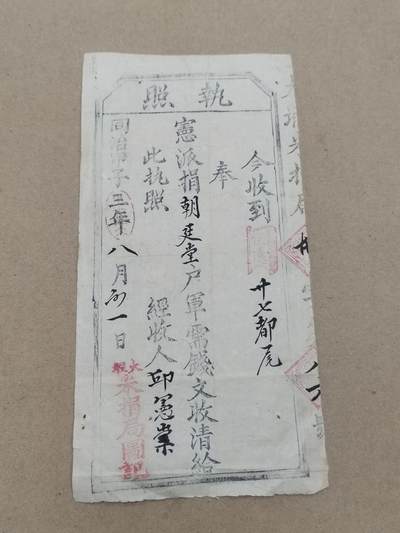 執照
今收到 卅七都尾
奉
憲派捐朝廷堂戶軍需錢文收清給
此執照 經收人邱
同治甲子三年八月初一日
米捐局圖記